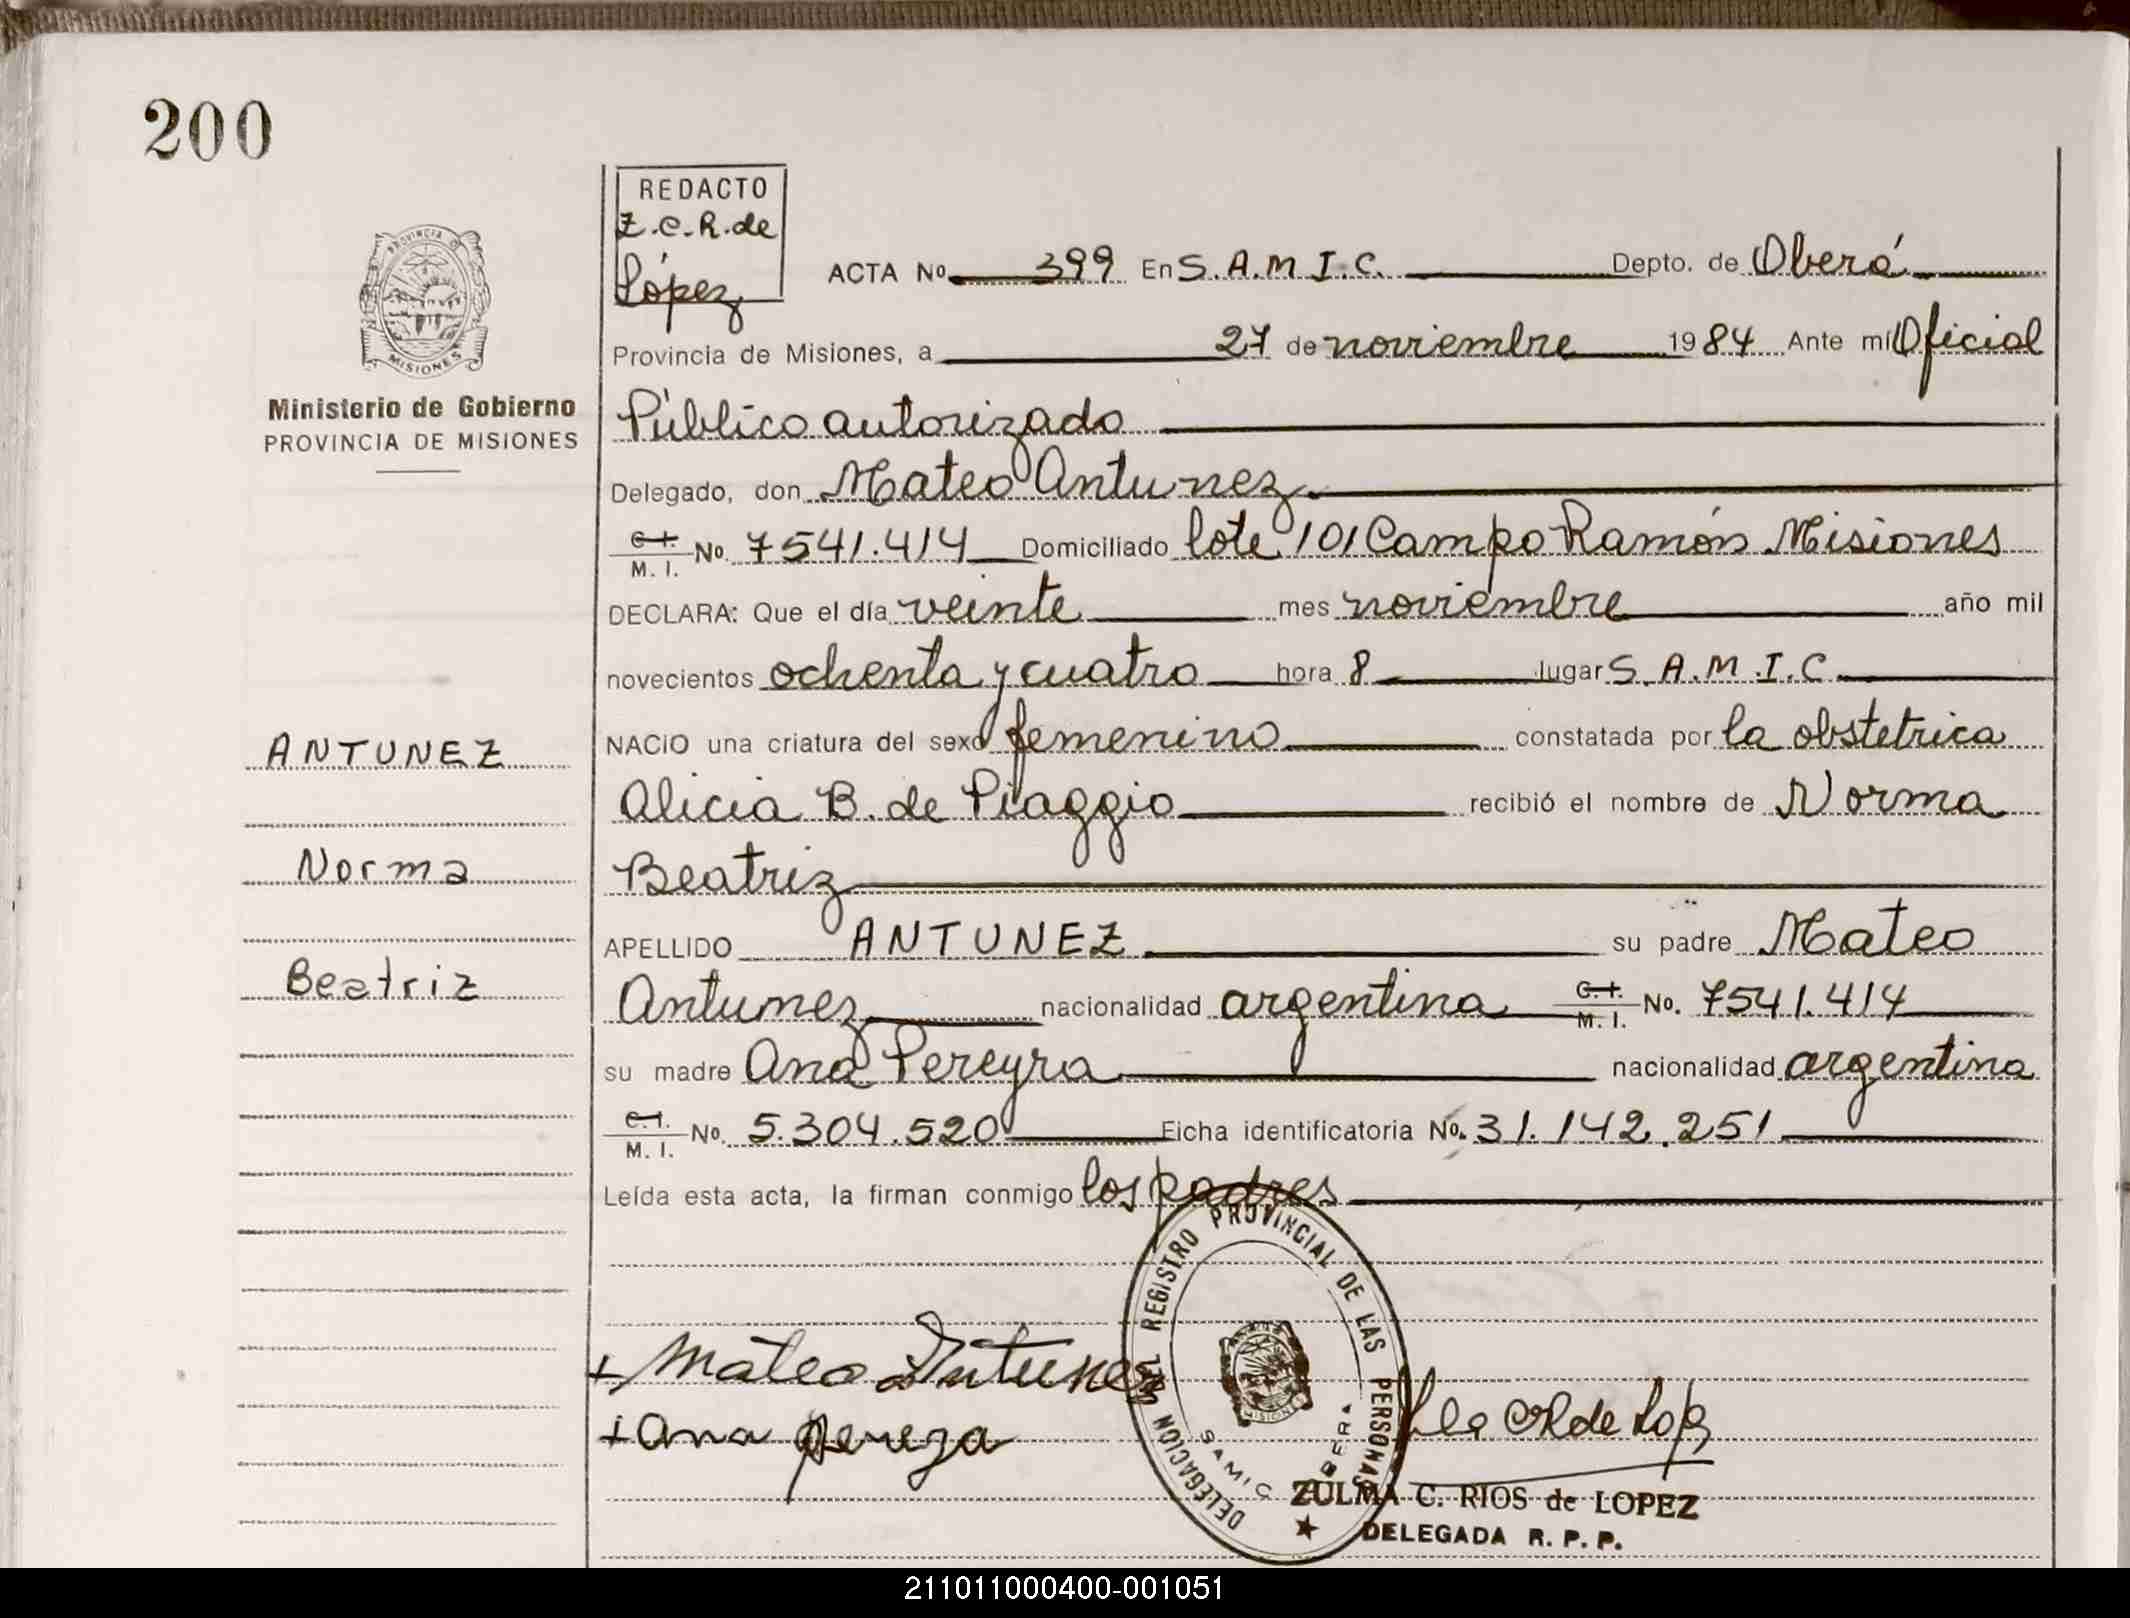 200
REDACTO
Z.C.R.de
López
ACTA No 399 En S.A.M.I.C. Depto. de Oberá
Provincia de Misiones, a 27 de noviembre 1984 Ante mí Oficial
Ministerio de Gobierno
PROVINCIA DE MISIONES
Público autorizado
Delegado, don Mateo Antunez
C.I. M.I. No. 7541.414 Domiciliado lote 101 Campo Ramón Misiones
DECLARA: Que el día veinte mes noviembre año mil
novecientos ochenta y cuatro hora 8 lugar S.A.M.I.C
NACIO una criatura del sexo femenino constatada por la obstetrica
ANTUNEZ
Alicia B. de Piaggio recibió el nombre de Norma
Norma
Beatriz
APELLIDO ANTUNEZ su padre Mateo
Beatriz
Antunez nacionalidad argentina C.I. M.I. No. 7541.414
su madre Ana Pereyra nacionalidad argentina
C.I. M.I. No. 5.304.520 Ficha identificatoria No. 31.142.251
Leída esta acta, la firman conmigo los padres
DELEGACION DEL REGISTRO PROVINCIAL DE LAS PERSONAS
SAMIC OBERA
MISIONES
+ Mateo Antunez
+ Ana pereza
ZULMA C. RIOS de LOPEZ
DELEGADA R. P. P.
211011000400-001051